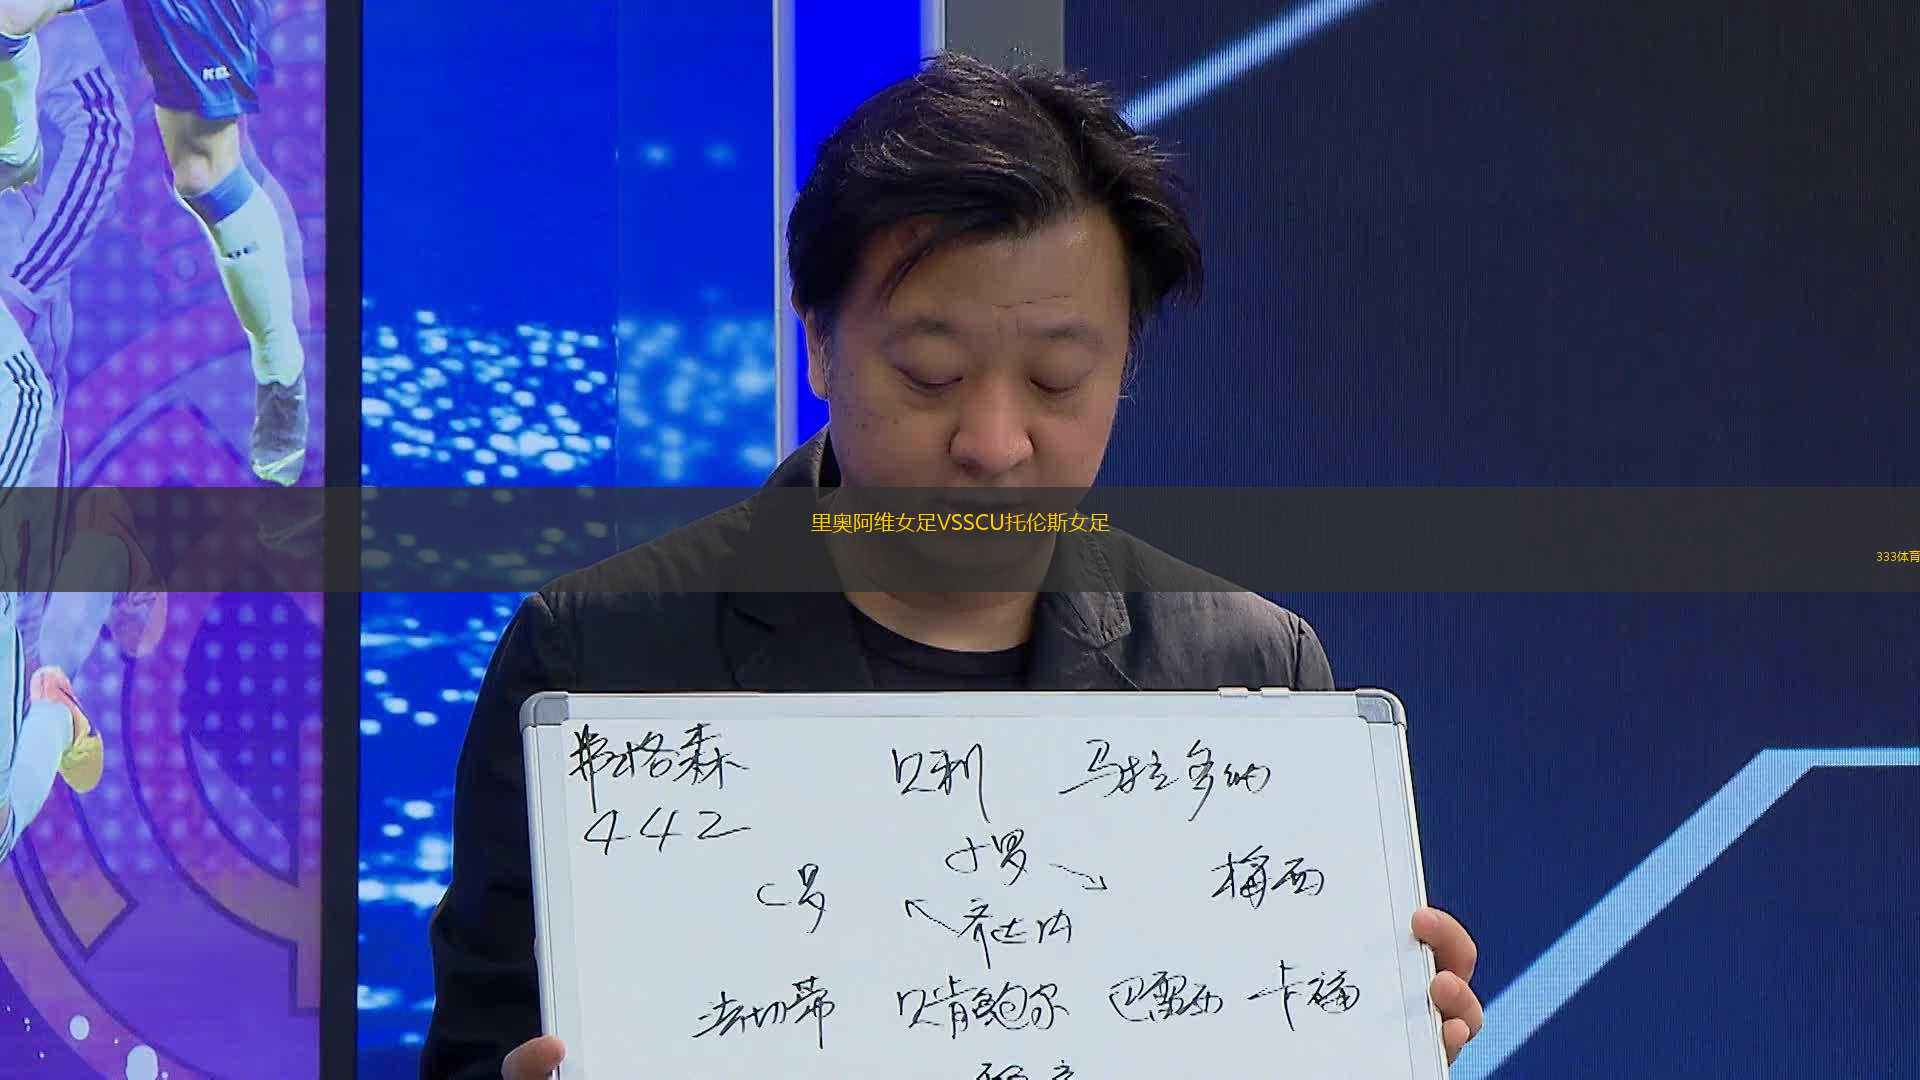 KELME
里奥阿维女足VSSCU托伦斯女足
333体育
弗格森 贝利 马拉多纳
442
小罗
C罗 梅西
齐达内
法切蒂 贝肯鲍尔 巴雷西 卡福